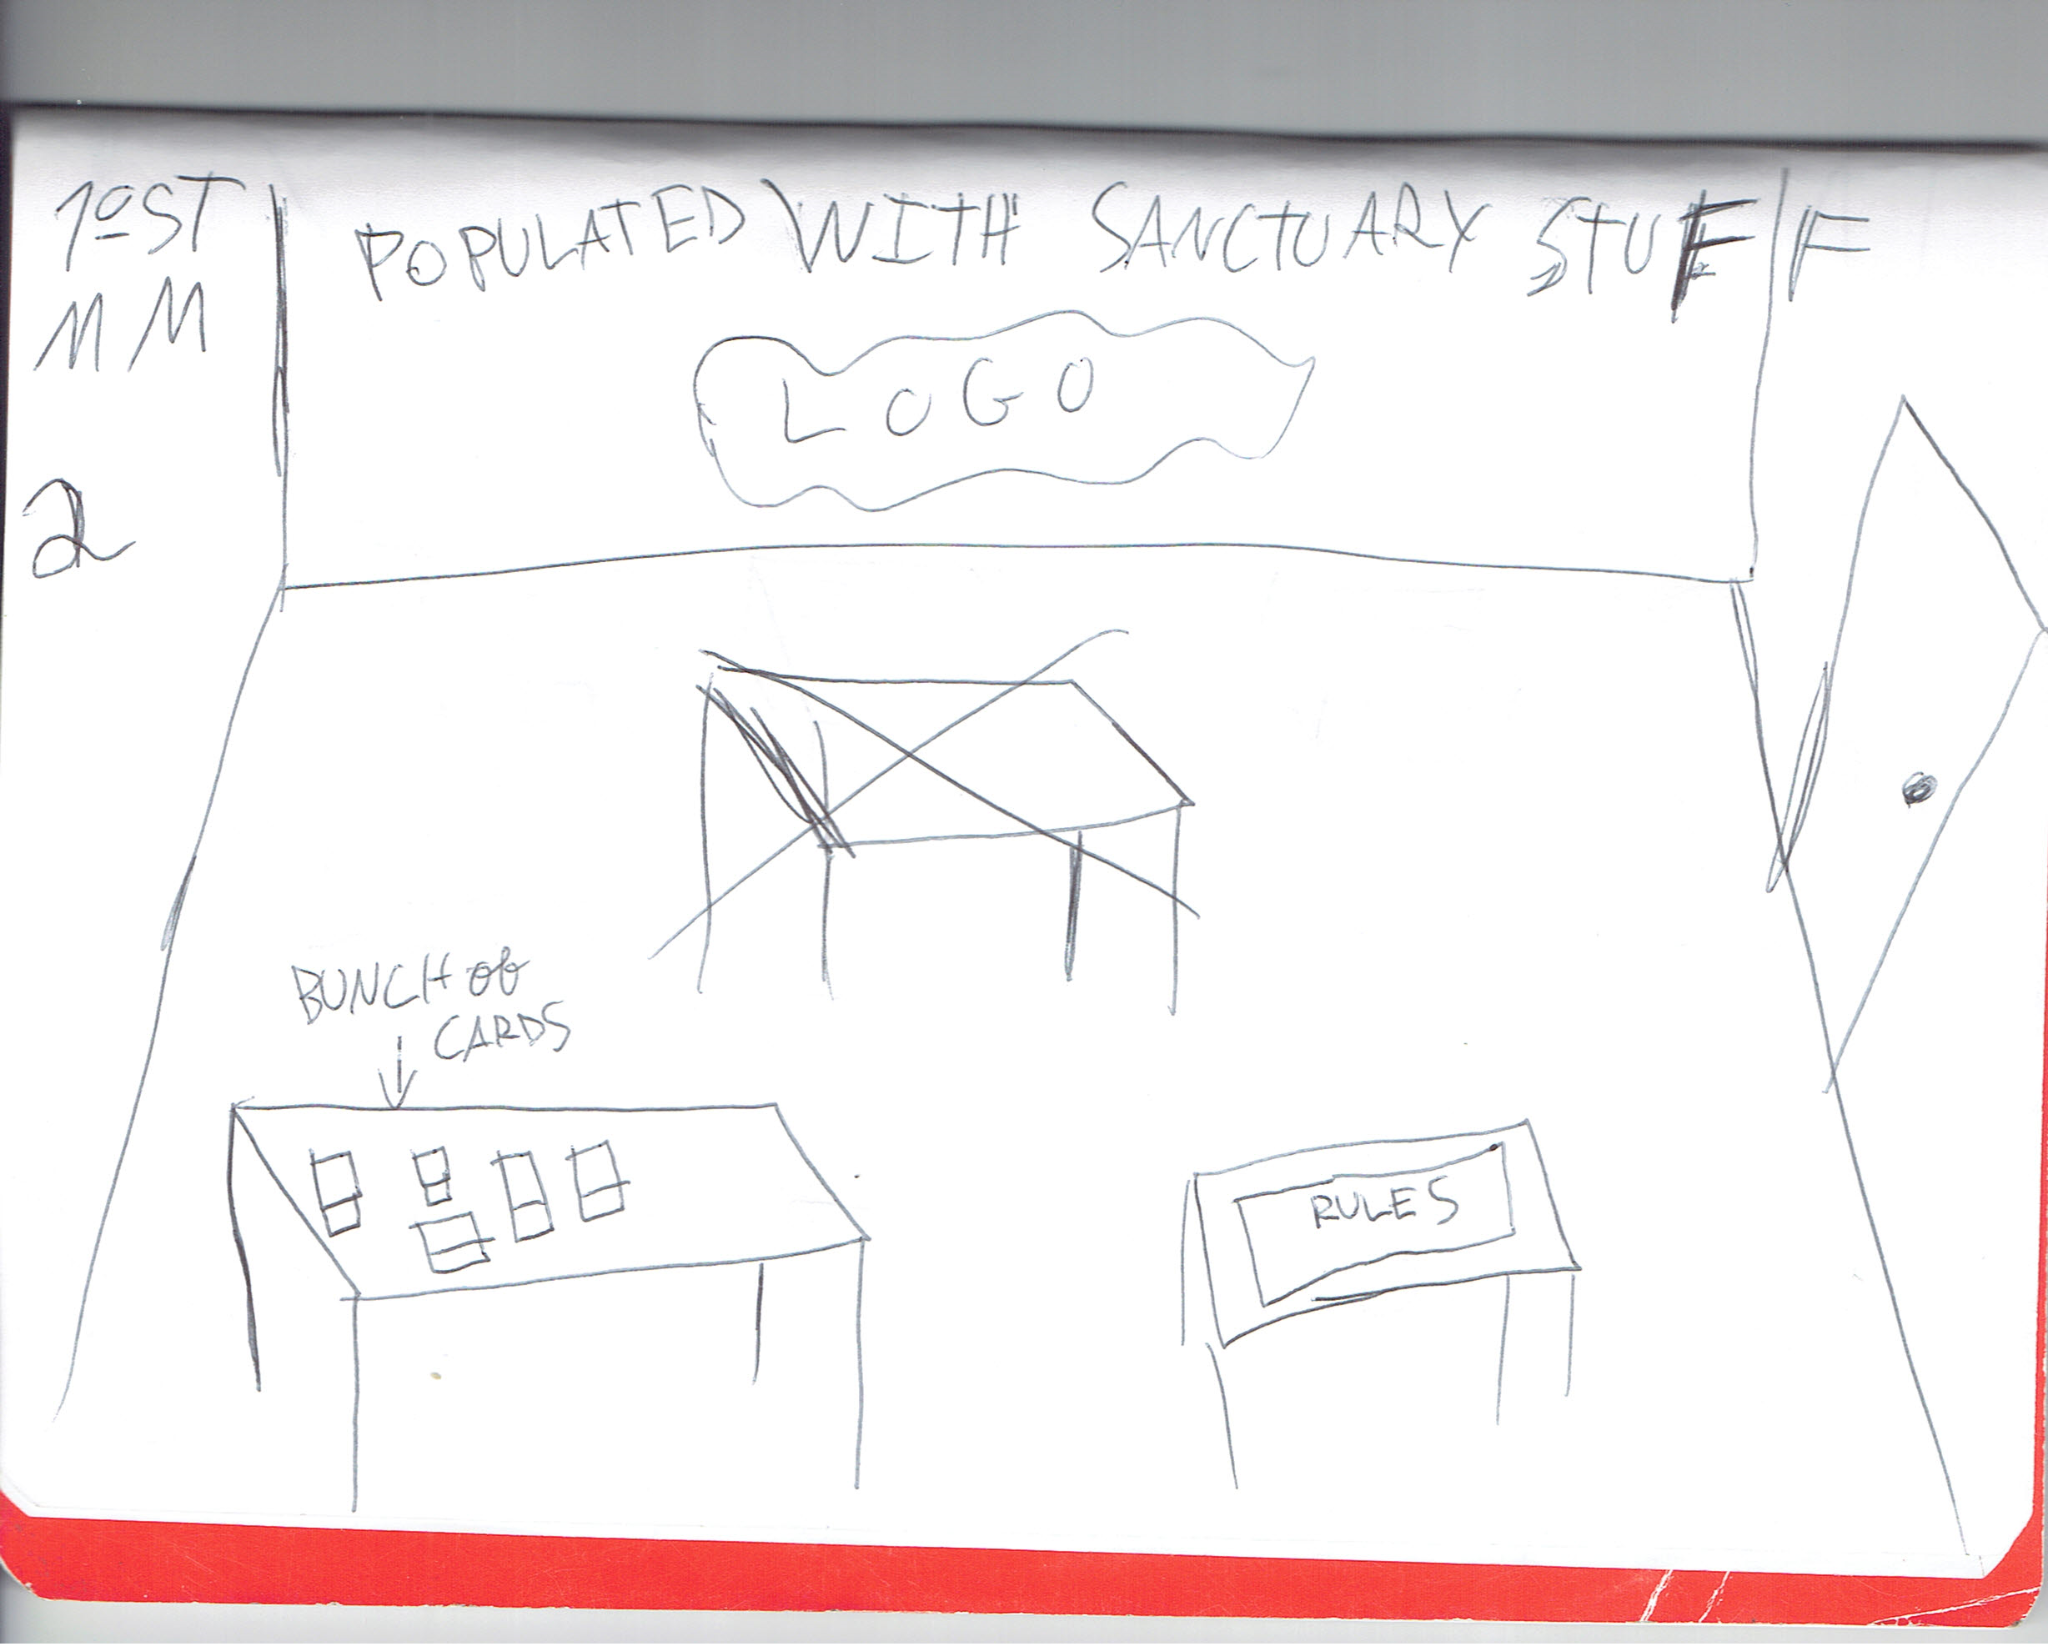 1ºST
MM
2
POPULATED WITH SANCTUARY STUFF
LOGO
BUNCH OF
CARDS
RULES